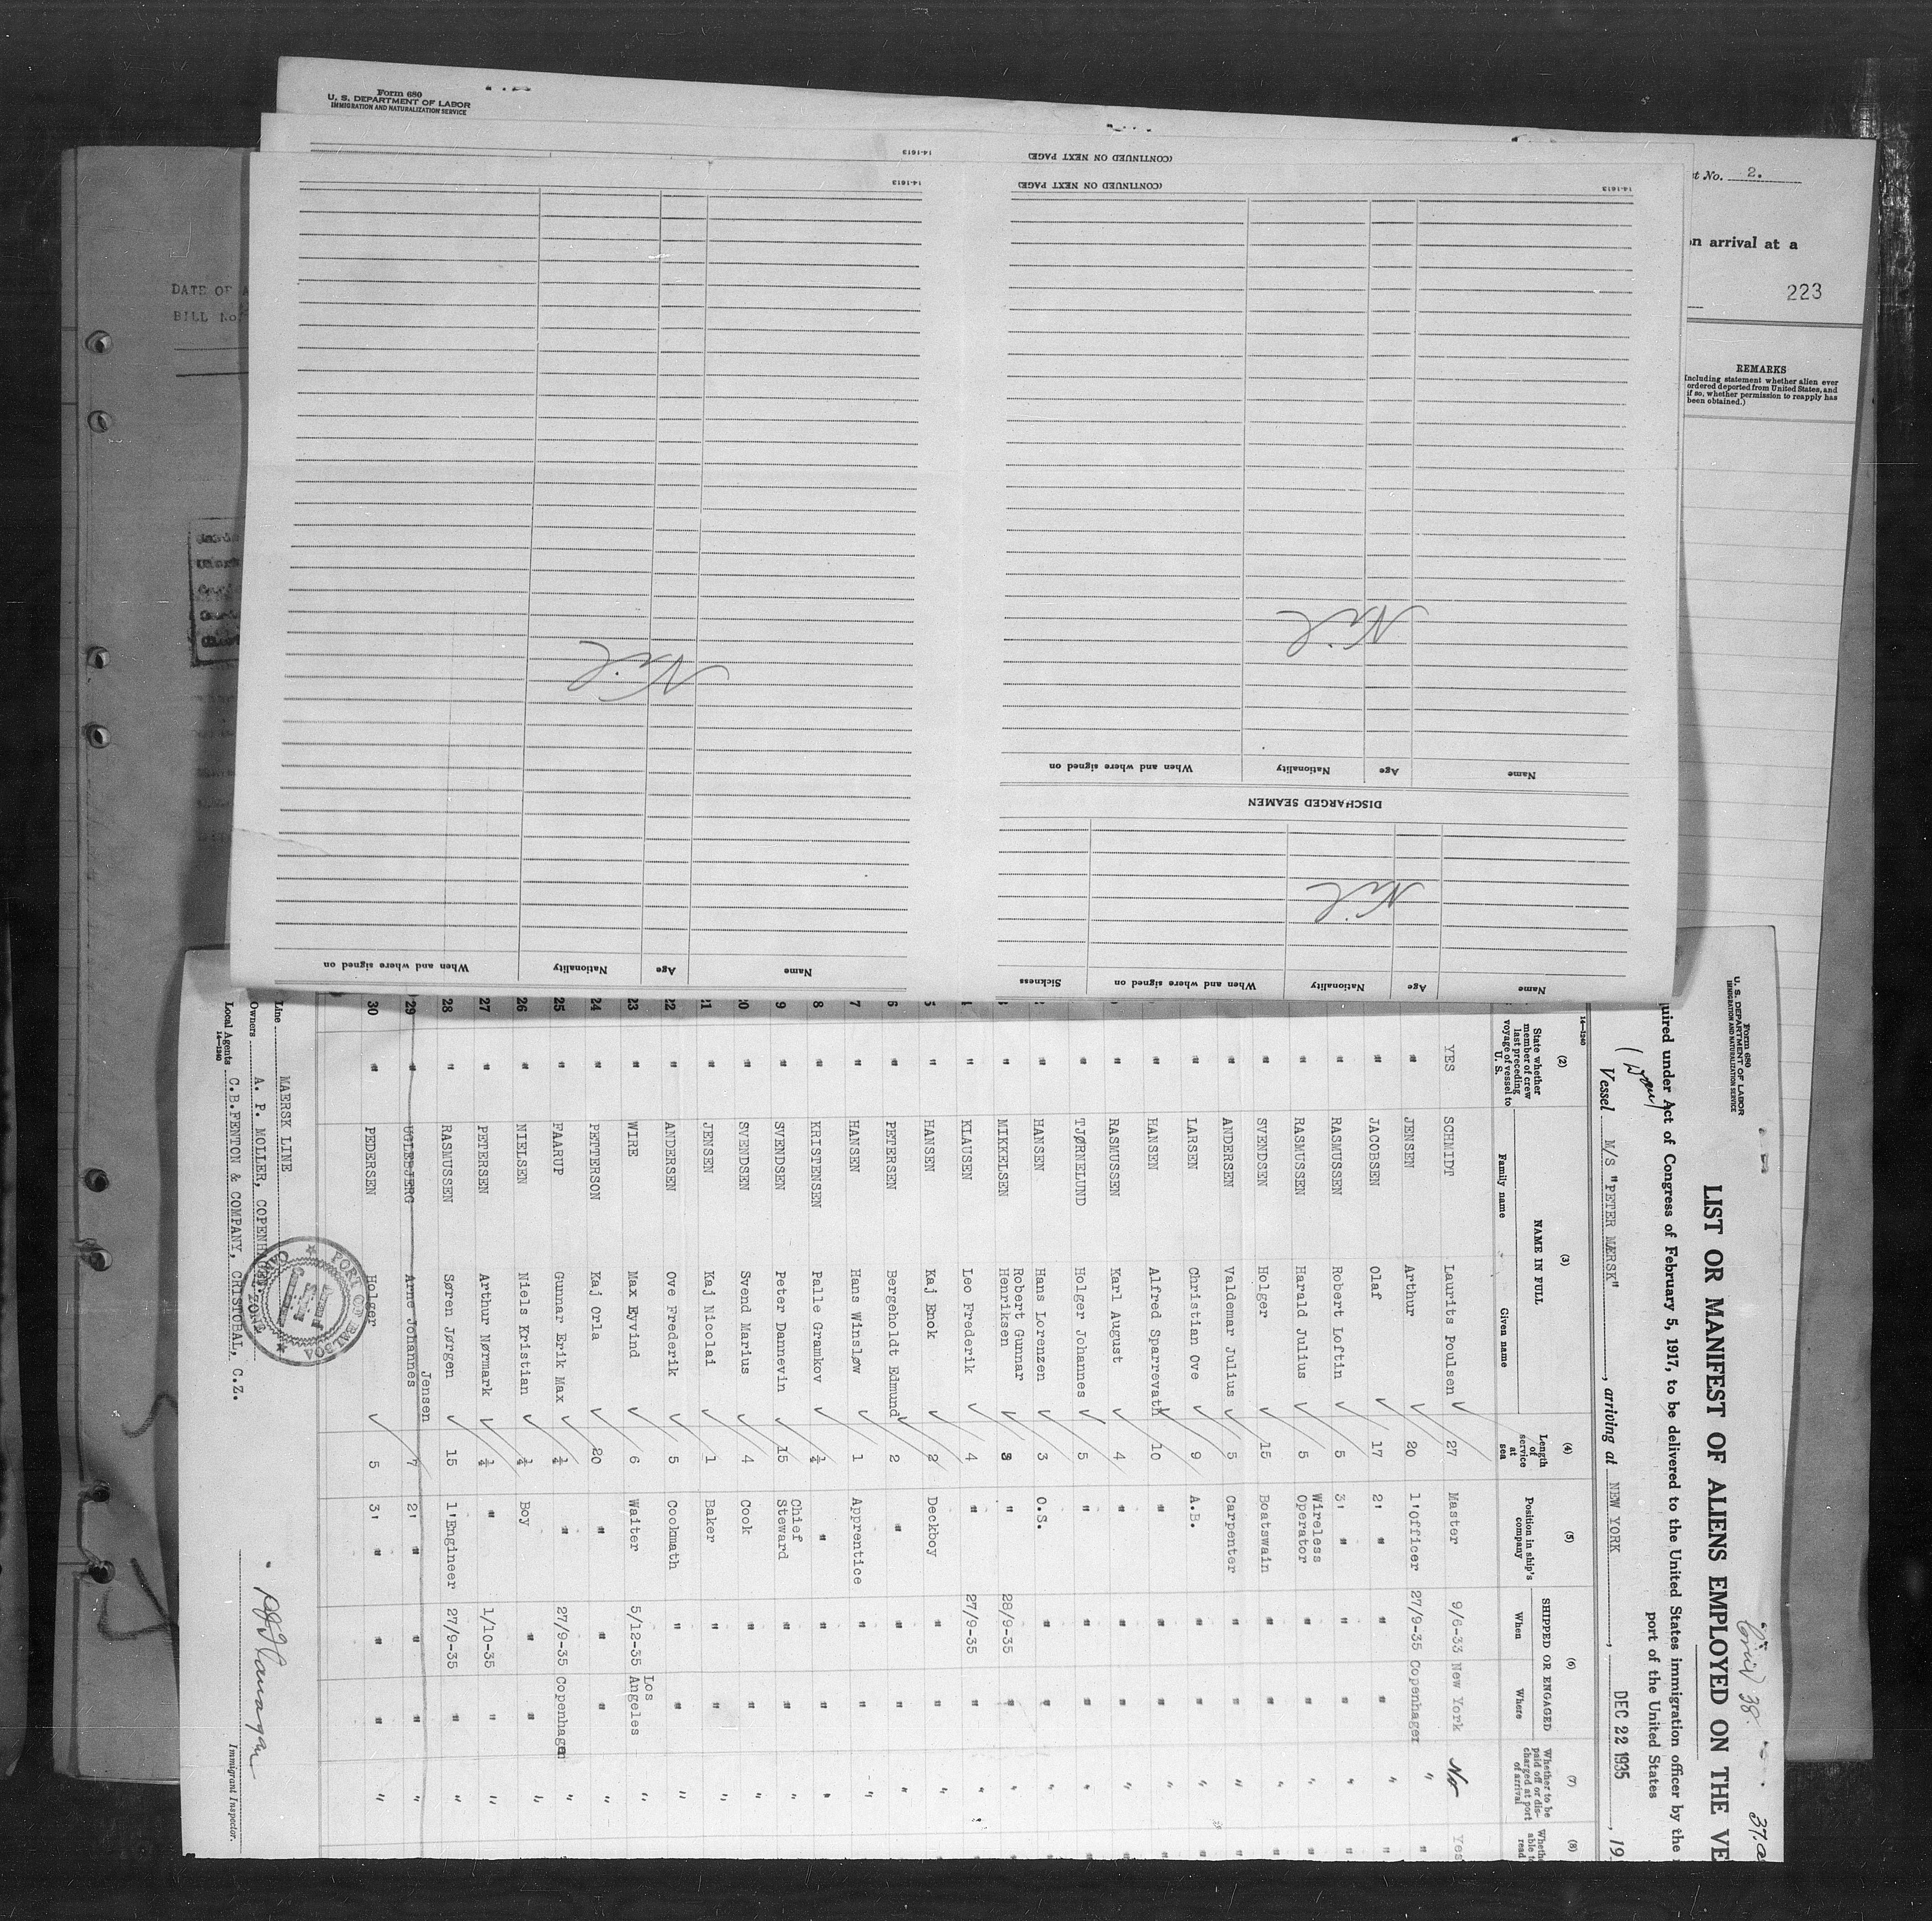 Form 680
U. S. DEPARTMENT OF LABOR
IMMIGRATION AND NATURALIZATION SERVICE
No. 2.
on arrival at a
223
REMARKS
(Including statement whether alien ever
ordered deported from United States, and
if so, whether permission to reapply has
been obtained.)
DATE OF
BILL No.
14-1613
(CONTINUED ON NEXT PAGE)
14-1613
(CONTINUED ON NEXT PAGE)
14-1613
Name Age Nationality When and where signed on
Nil
DISCHARGED SEAMEN
Name Age Nationality When and where signed on
Nil
Name Age Nationality When and where signed on Sickness
Nil
Form 680
U. S. DEPARTMENT OF LABOR
IMMIGRATION AND NATURALIZATION SERVICE
38.
LIST OR MANIFEST OF ALIENS EMPLOYED ON THE VE
quired under Act of Congress of February 5, 1917, to be delivered to the United States immigration officer by the
port of the United States
Vessel M/S "PETER MÆRSK", arriving at NEW YORK, DEC 22 1935, 19
14-1240
(2) (3) (4) (5) (6) (7) (8)
State whether member of crew last preceding voyage of vessel to U. S.
NAME IN FULL
Family name Given name
Length of service at sea
Position in ship's company
SHIPPED OR ENGAGED
When Where
Whether to be paid off or discharged at port of arrival
YES SCHMIDT Laurits Poulsen 27 Master 9/6-33 New York No Yes
" JENSEN Arthur 20 1'Officer 27/9-35 Copenhager "
" JACOBSEN Olaf 17 2' " " " "
" RASMUSSEN Robert Loftin 5 3' " " " "
" RASMUSSEN Harald Julius 5 Wireless Operator " " "
" SVENDSEN Holger 15 Boatswain " " "
" ANDERSEN Valdemar Julius 5 Carpenter " " "
" LARSEN Christian Ove 9 A.B. " " "
" HANSEN Alfred Sparrevath 10 " " " "
" RASMUSSEN Karl August 4 " " " "
" TJØRNELUND Holger Johannes 5 " " " "
" HANSEN Hans Lorenzen 3 O.S. " " "
" MIKKELSEN Robert Gunnar Henriksen 3 " 28/9-35 " "
" KLAUSEN Leo Frederik 4 " 27/9-35 " "
" HANSEN Kaj Enok 2 Deckboy " " "
" PETERSEN Bergeholdt Edmund 2 " " " "
" HANSEN Hans Winsløw 1 Apprentice " " "
" KRISTENSEN Palle Gramkov ½ " " " "
" SVENDSEN Peter Dannevin 15 Chief Steward " " "
" SVENDSEN Svend Marius 4 Cook " " "
" JENSEN Kaj Nicolai 1 Baker " " "
22 " ANDERSEN Ove Frederik 5 Cookmath " " "
23 " WIRE Max Eyvind 6 Waiter 5/12-35 Los Angeles "
24 " PETTERSON Kaj Orla 20 " " " "
25 " FAARUP Gunnar Erik Max ½ " 27/9-35 Copenhagen "
26 " NIELSEN Niels Kristian ½ Boy " " "
27 " PETERSEN Arthur Nørmark ½ " 1/10-35 " "
28 " RASMUSSEN Søren Jørgen 15 1'Engineer 27/9-35 " "
29 " UGLEBJERG Arne Johannes Jensen 7 2' " " " "
30 " PEDERSEN Holger 5 3' " " " "
Line MAERSK LINE
Owners A. P. MOLLER, COPENHAGEN.
Local Agents C.B.FENTON & COMPANY, CRISTOBAL, C.Z.
14-1240
PORT OF BALBOA
CANAL ZONE
Immigrant Inspector.